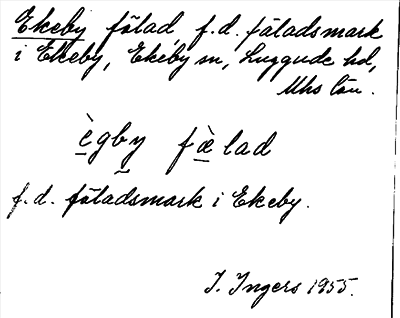 Ekeby fölad f.d. föladsmark
i Ekeby, Ekeby sn, Luggude hd,
Mhs län.
ègby fæ̀lad
f.d. föladsmark i Ekeby.
I. Ingers 1955.